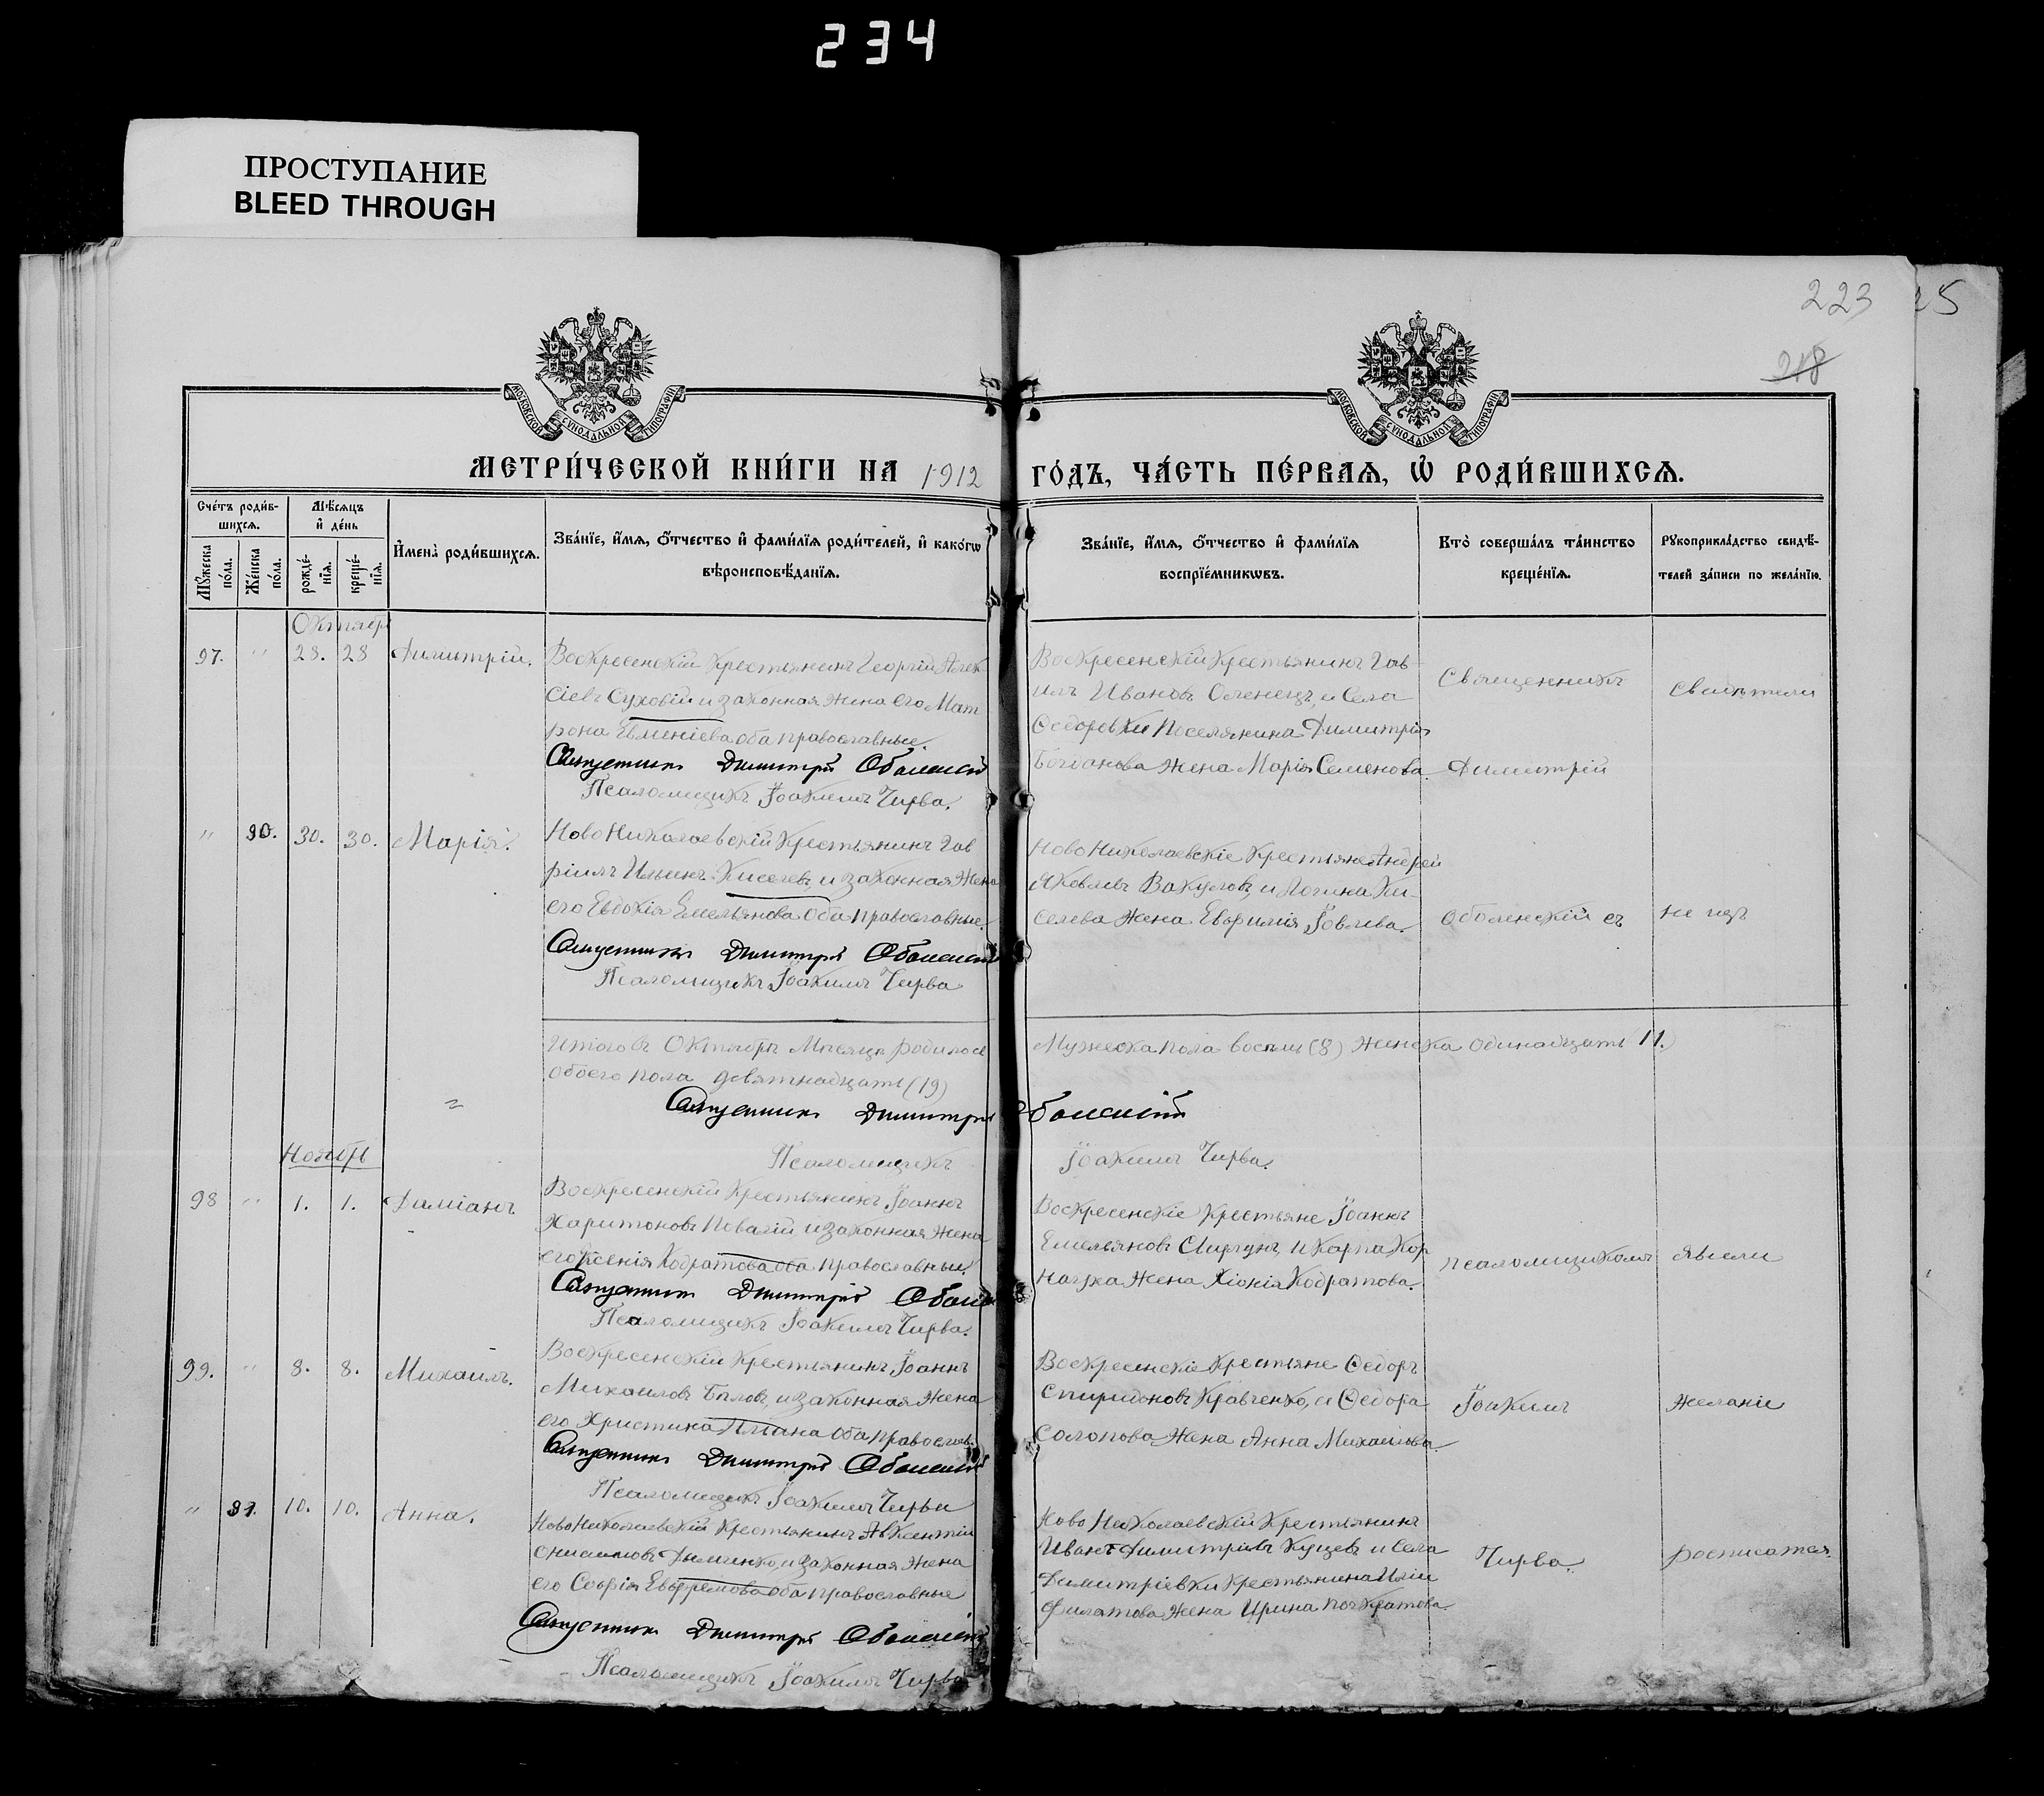 234
ПРОСТУПАНИЕ
BLEED THROUGH
223
25
218
МОСКОВСКОЙ СУНОДАЛЬНОЙ ТИПОГРАФІИ
МОСКОВСКОЙ СУНОДАЛЬНОЙ ТИПОГРАФІИ
МЕТРИ́ЧЕСКОЙ КНИ́ГИ НА 1912 ГО́ДЪ, ЧА́СТЬ ПЕ́РВАѦ, Ѡ҆ РОДИ́ВШИХСѦ.
Сче́тъ роди́в-
шихсѧ.
Мѣ́сѧцъ
и҆ де́нь
Мꙋ́жеска по́ла.
Же́нска по́ла.
рожде́-нїѧ.
креще́-нїѧ.
И҆мена̀ роди́вшихсѧ.
Зва́нїе, и҆́мѧ, ѻ҆́тчество и҆ фами́лїѧ роди́телей, и҆ како́гѡ
вѣроисповѣ́данїѧ.
Зва́нїе, и҆́мѧ, ѻ҆́тчество и҆ фами́лїѧ
воспрїе́мникѡвъ.
Кто̀ соверша́лъ та́инство
креще́нїѧ.
Рꙋкоприкла́дство свидѣ́-
телей за́писи по жела́нїю.
Октябр
97. " 28. 28 Димитрій.
Воскресенскій Крестьянинъ Георгій Алек-
сіевъ Суховій и законная жена его Мат
рона Евменіева оба православные.
Священникъ Димитрій Оболенскій
Псаломщикъ Іоакимъ Чирва.
Воскресенскій Крестьянинъ Гав-
іилъ Ивановъ Оленецъ, и села
Ѳедоровки Поселянина Димитрія
Богданова жена Марія Семенова.
Священникъ
Димитрій
Свидѣтели
" 90. 30. 30. Марія.
Ново Николаевскій Крестьянинъ Гав
ріилъ Ильинъ Киселевъ, и законная жена
его Евдокія Емельянова оба православные.
Священникъ Димитрій Оболенскій
Псаломщикъ Іоакимъ Чирва
Ново Николаевскіе Крестьяне Андрей
Яковлевъ Вакуловъ, и Логина Ки-
селева жена Евфимія Іовлева.
Оболенскій съ
не изъ
Итого въ Октябрѣ Мѣсяцѣ родилось Мужеска пола восемь (8) Женска одинадцать (11.)
обоего пола девятнадцать (19)
Священникъ Димитрій Оболенскій
Псаломщикъ Іоакимъ Чирва.
Ноябрь
98 " 1. 1. Даміанъ
Воскресенскій Крестьянинъ Іоаннъ
Харитоновъ Повалій и законная жена
его Ксенія Кодратова оба православные.
Священникъ Димитрій Оболен
Псаломщикъ Іоакимъ Чирва.
Воскресенскіе Крестьяне Іоаннъ
Емельяновъ и Карпа Кор
наука жена Хіонія Кодратова.
псаломщикомъ
явили
99. " 8. 8. Михаилъ.
Воскресенскій Крестьянинъ Іоаннъ
Михаиловъ Бѣловъ, и законная жена
его Христина оба православ.
Священникъ Димитрій Оболенскій
Псаломщикъ Іоакимъ Чирва
Воскресенскіе Крестьяне Ѳедоръ
Спиридоновъ Кравченко, и Ѳедора
Солопова жена Анна Михаилова.
Іоакимъ
желаніе
" 91. 10. 10. Анна.
Ново Николаевскій Крестьянинъ Авксентій
Онисимовъ Дыменко, и законная жена
его Софія Евфремова оба православные
Священникъ Димитрій Оболенскій
Псаломщикъ Іоакимъ Чирва
Ново Николаевскій Крестьянинъ
Иванъ Димитріевъ Куцевъ и села
Димитріевки Крестьянина Иліи
Филатова жена Ирина Понкратова.
Чирва.
росписатся.